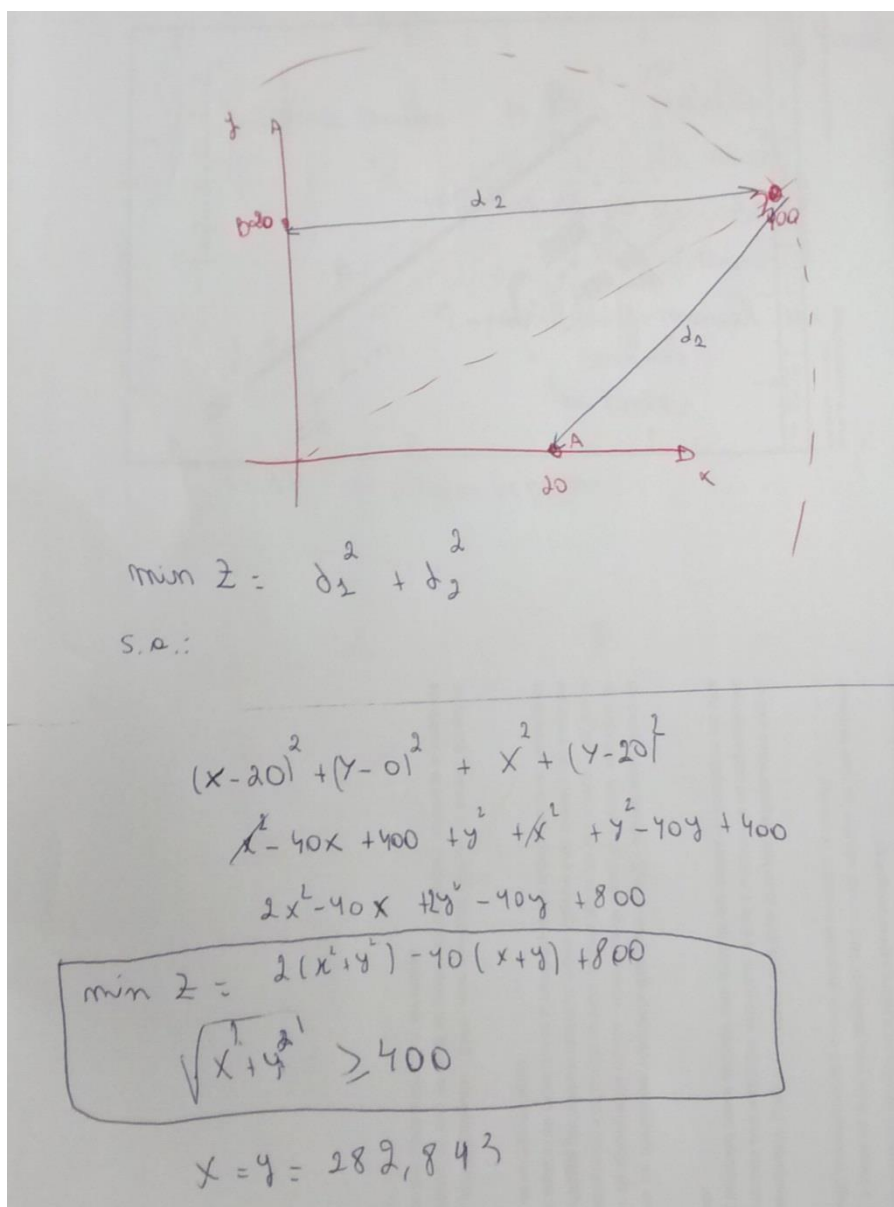 y
d2
B 20
400
d2
A
20
x
min Z = d1² + d2²
s.a.:
(x-20)² + (y-0)² + x² + (y-20)²
x² - 40x + 400 + y² + x² + y² - 40y + 400
2x² - 40x + 2y² - 40y + 800
min Z = 2(x² + y²) - 40(x+y) + 800
√x² + y² ≥ 400
x = y = 282,843